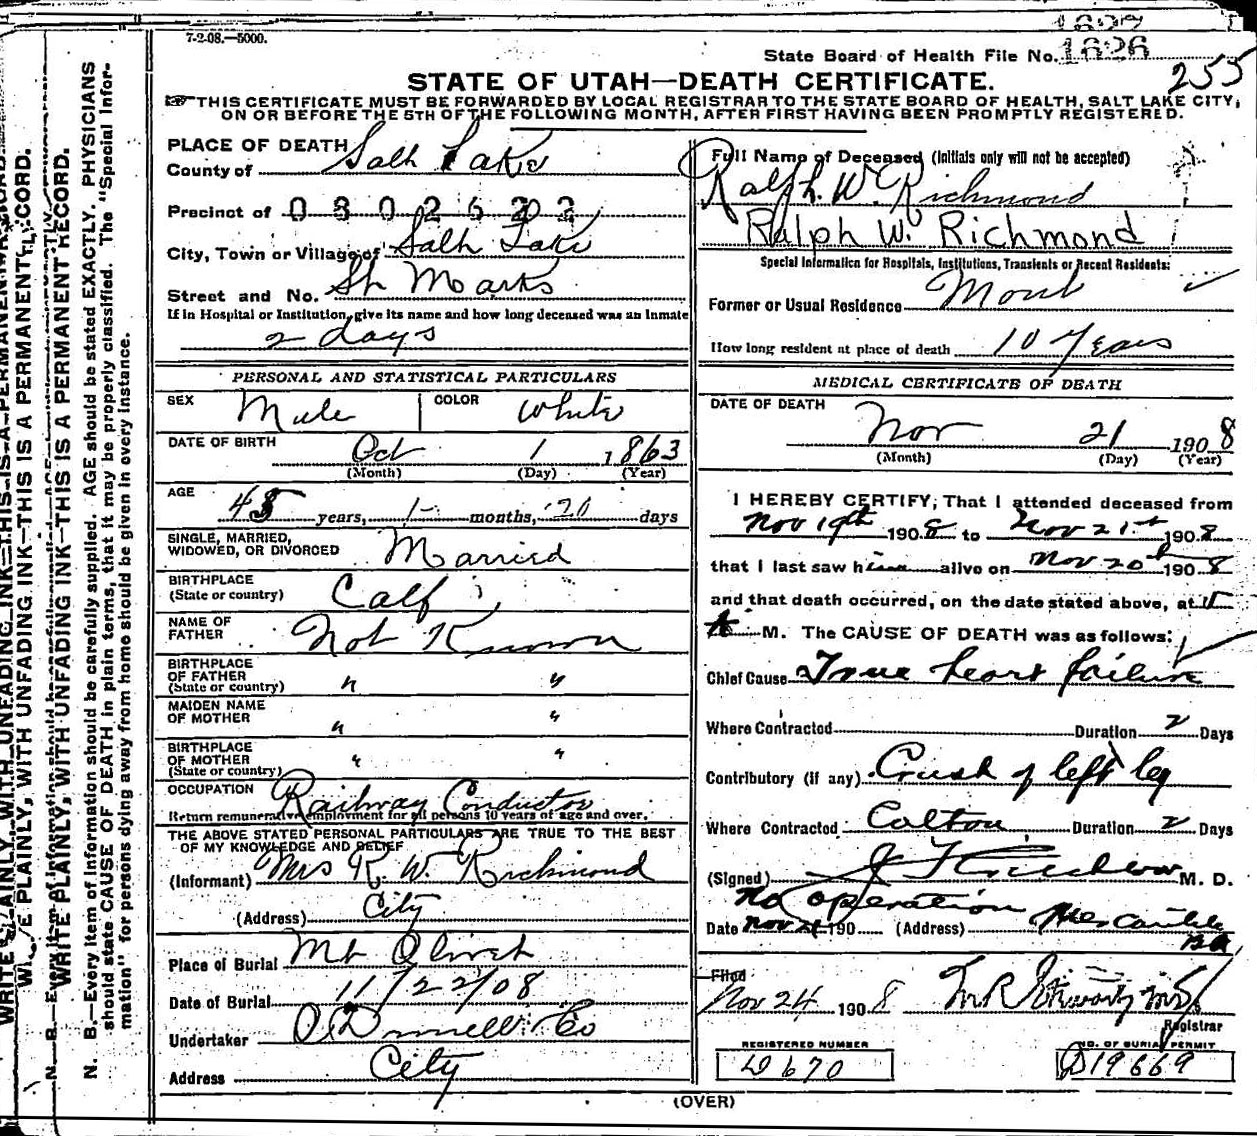 7-2-08.—5000.
1627
State Board of Health File No. 1626
255
STATE OF UTAH—DEATH CERTIFICATE.
☞THIS CERTIFICATE MUST BE FORWARDED BY LOCAL REGISTRAR TO THE STATE BOARD OF HEALTH, SALT LAKE CITY,
ON OR BEFORE THE 5TH OF THE FOLLOWING MONTH, AFTER FIRST HAVING BEEN PROMPTLY REGISTERED.
PLACE OF DEATH
County of Salt Lake
Precinct of 0802622
City, Town or Village of Salt Lake
Street and No. St Marks
If in Hospital or Institution, give its name and how long deceased was an Inmate
2 days
Full Name of Deceased (Initials only will not be accepted)
Ralph. W. Richmond
Ralph W. Richmond
Special Information for Hospitals, Institutions, Transients or Recent Residents:
Former or Usual Residence
How long resident at place of death 10 Years
PERSONAL AND STATISTICAL PARTICULARS
SEX Male COLOR White
DATE OF BIRTH Oct 1 1863
(Month) (Day) (Year)
AGE 45 years, 1 months, 20 days
SINGLE, MARRIED,
WIDOWED, OR DIVORCED Married
BIRTHPLACE
(State or country) Calf
NAME OF
FATHER Not Known
BIRTHPLACE
OF FATHER
(State or country) " "
MAIDEN NAME
OF MOTHER " "
BIRTHPLACE
OF MOTHER
(State or country) " "
OCCUPATION Railway Conductor
Return remunerative employment for all persons 10 years of age and over.
THE ABOVE STATED PERSONAL PARTICULARS ARE TRUE TO THE BEST
OF MY KNOWLEDGE AND BELIEF
(Informant) Mrs R. W. Richmond
(Address) City
Place of Burial Mt Olivet
Date of Burial 11/22/08
Undertaker O'Donnell & Co
Address City
MEDICAL CERTIFICATE OF DEATH
DATE OF DEATH
Nov 21 1908
(Month) (Day) (Year)
I HEREBY CERTIFY, That I attended deceased from
Nov 19th 1908 to Nov 21st 1908
that I last saw him alive on Nov 20th 1908
and that death occurred, on the date stated above, at
A M. The CAUSE OF DEATH was as follows:
Chief Cause True heart failure
Where Contracted Duration 2 Days
Contributory (if any) Crush of left leg
Where Contracted Colton Duration 2 Days
(Signed) M. D.
No operation
Date Nov 21 190 (Address) Mercantile
Filed
Nov 24 1908
Registrar
REGISTERED NUMBER
D 670
NO. OF BURIAL PERMIT
D19669
(OVER)
WRITE PLAINLY, WITH UNFADING INK—THIS IS A PERMANENT RECORD.
WRITE PLAINLY, WITH UNFADING INK—THIS IS A PERMANENT RECORD.
WRITE PLAINLY, WITH UNFADING INK—THIS IS A PERMANENT RECORD.
N. B.—Every item of information should be carefully supplied. AGE should be stated EXACTLY. PHYSICIANS
should state CAUSE OF DEATH in plain terms, that it may be properly classified. The "Special Infor-
mation" for persons dying away from home should be given in every instance.